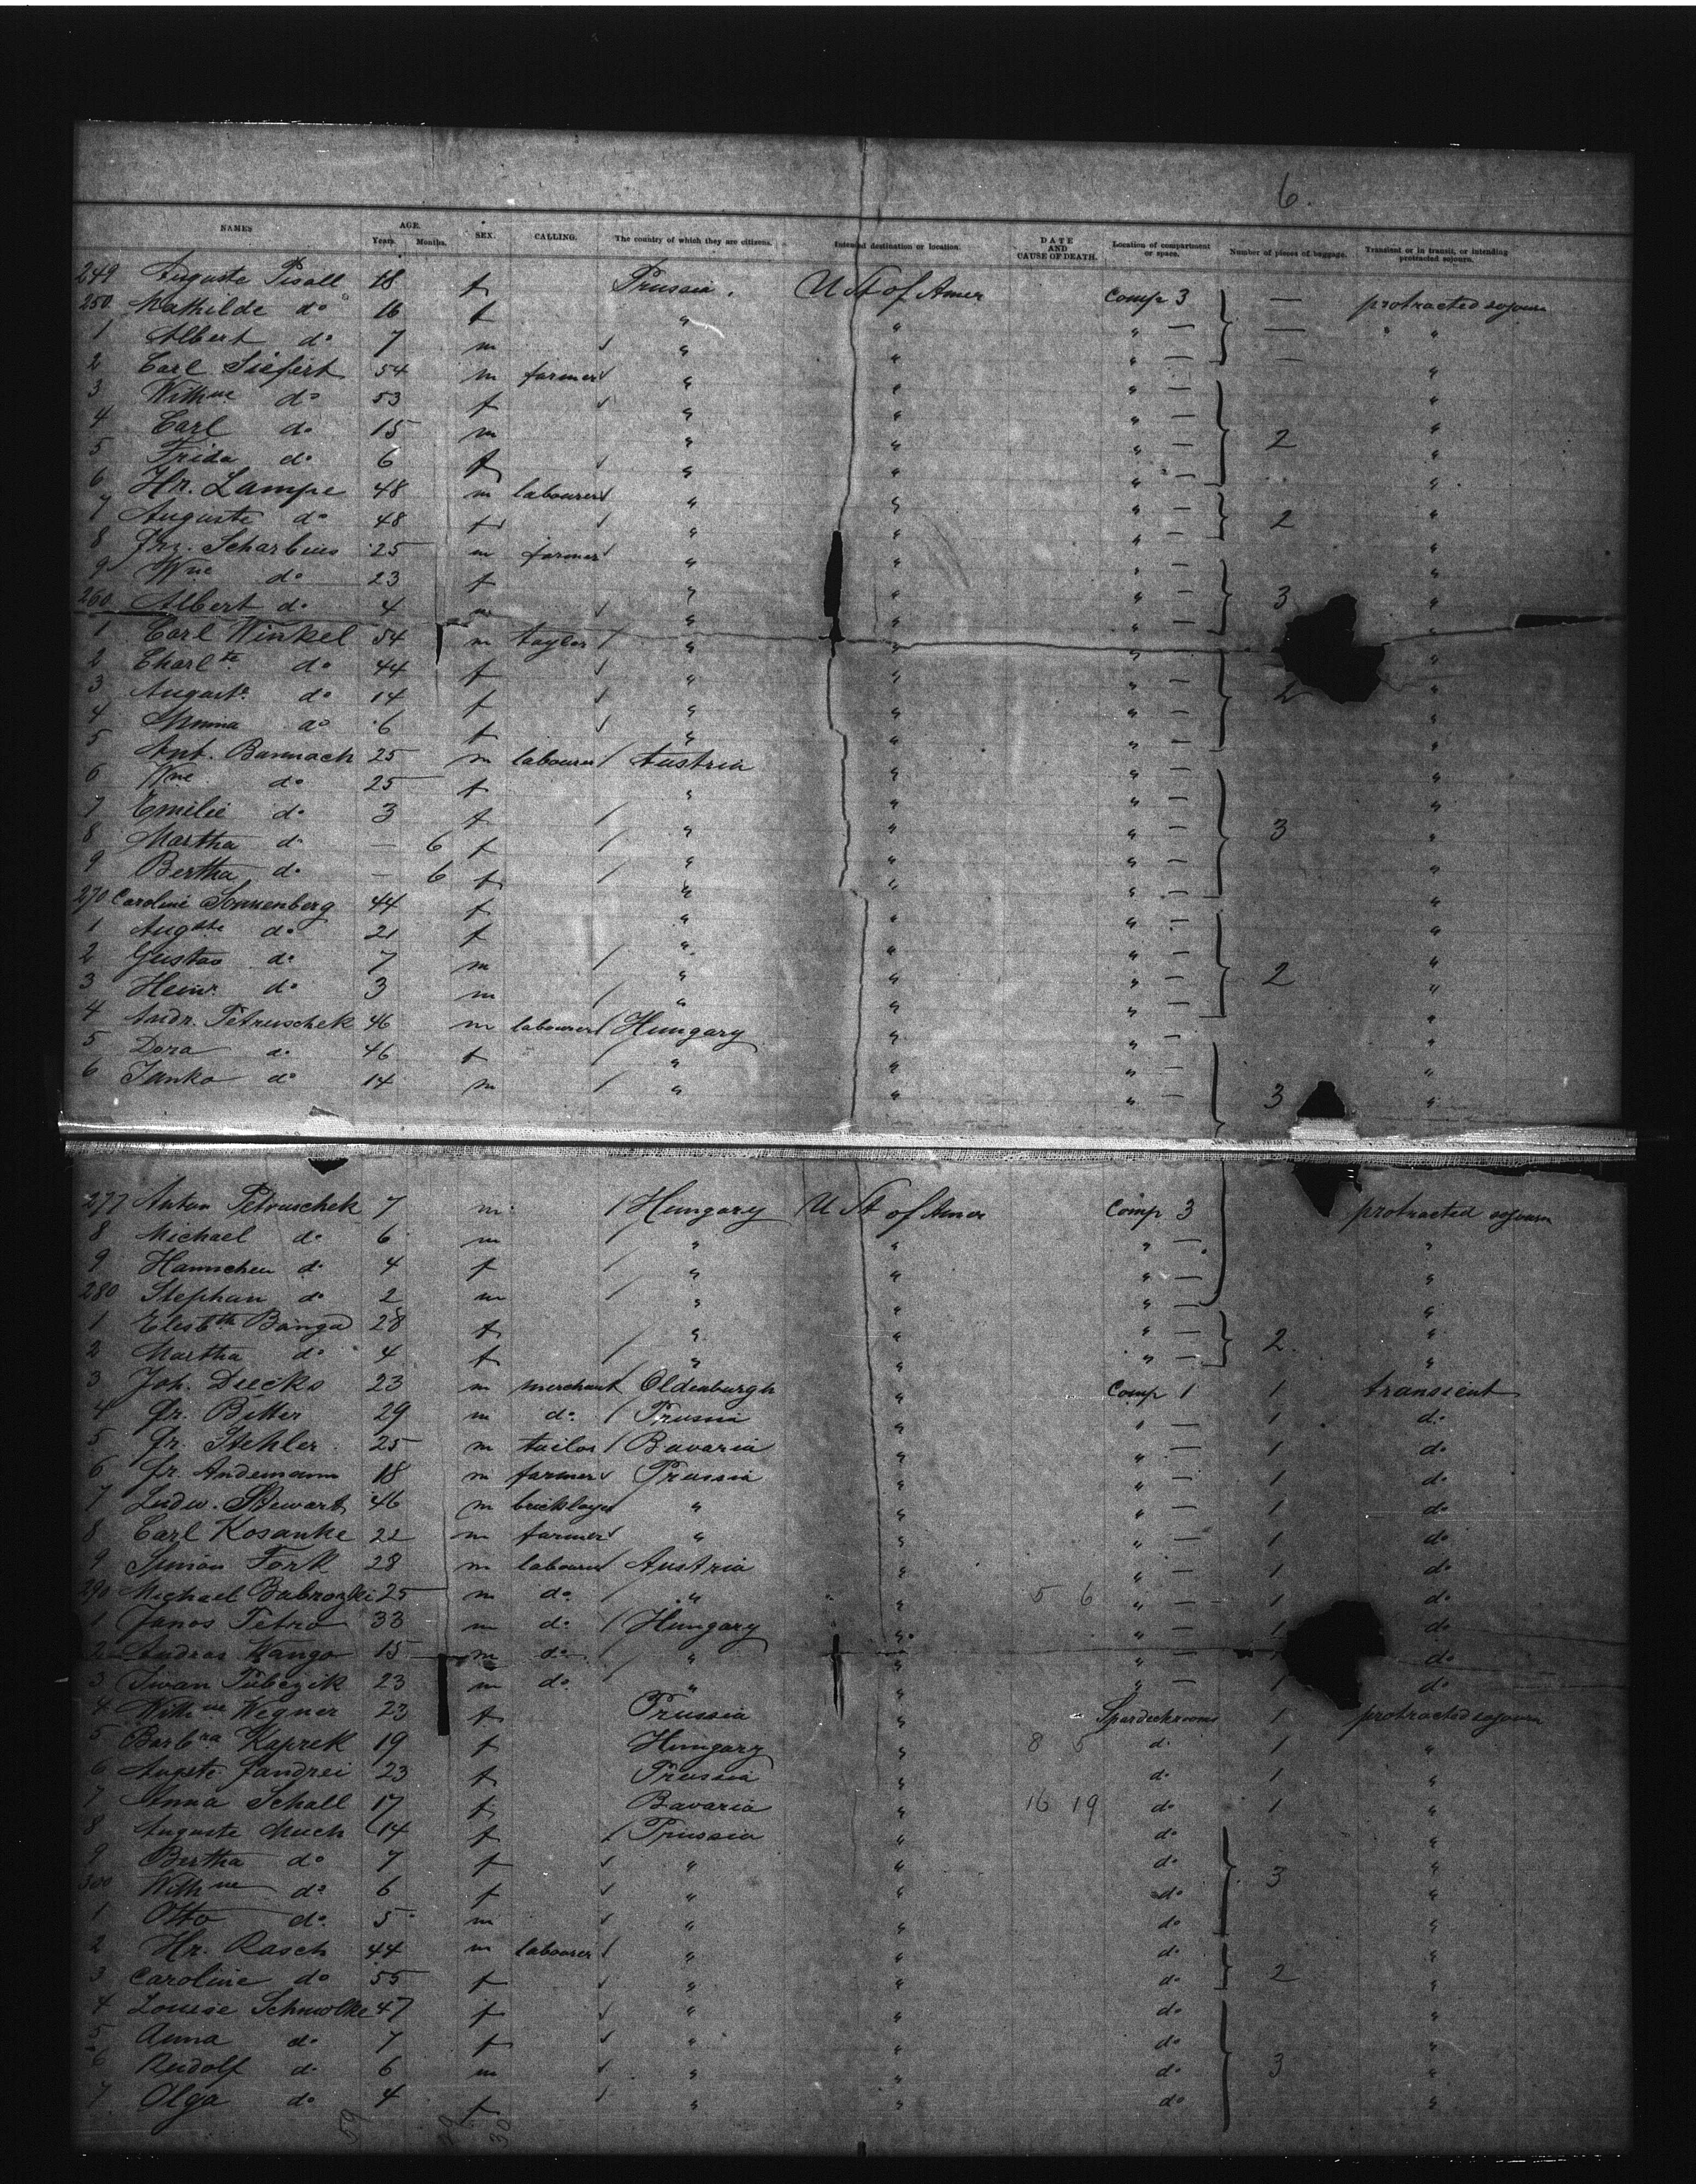 6.
NAMES AGE. Years. Months. SEX. CALLING. The country of which they are citizens. Intended destination or location. DATE AND CAUSE OF DEATH. Location of compartment or space. Number of pieces of baggage. Transient or in transit, or intending protracted sojourn.
249 Auguste Pisall 18 f Prussia. U St of Amer Comp 3 — protracted sojourn
250 Mathilde do 16 f " " " — — " "
1 Albert do 7 m ✓ " " " — —
2 Carl Siefert 54 m farmer ✓ " " " — "
3 Withne do 53 f ✓ " " " — "
4 Carl do 15 m " " " — 2 "
5 Frida do 6 f ✓ " " " — "
6 Hr. Lampe 48 m labourer ✓ " " " — "
7 Auguste do 48 f ✓ " " " — 2 "
8 Frz. Scharbius 25 m farmer ✓ " " " — "
9 Wne do 23 f " " " — 3 "
260 Albert do 4 m ✓ " " " — "
1 Carl Winkel 54 m taylor / " " " — "
2 Charlte do 44 f ✓ " " " — "
3 Auguste do 14 f ✓ " " " — 2 "
4 Emma do 6 f ✓ " " " — "
5 Ant. Bannach 25 m labourer / Austria " " — "
6 Wne do 25 f " " " — "
7 Emilie do 3 f / " " " — 3 "
8 Martha do — 6 f / " " " — "
9 Bertha do — 6 f / " " " — "
270 Caroline Sonnenberg 44 f " " " — "
1 Augste do 21 f " " " — "
2 Gustav do 7 m / " " " — 2 "
3 Heinr. do 3 m / " " " — "
4 Andr. Petruschek 46 m labourer / Hungary " " — "
5 Dora do 46 f / " " " — "
6 Janko do 14 m / " " " — 3 "
277 Anton Petruschek 7 m / Hungary U St of Amer Comp 3 protracted sojourn
8 Michael do 6 m / " " " — "
9 Hannchen do 4 f / " " " — "
280 Stephan do 2 m / " " " — "
1 Elisbth Banga 28 f " " " — 2. "
2 Martha do 4 f / " " " — "
3 Joh. Diecks 23 m merchant Oldenburgh " Comp 1 1 transient
4 Fr. Bitter 29 m do / Prussia " " — 1 do
5 Fr. Stehler 25 m tailor / Bavaria " " — 1 do
6 Fr. Andemann 18 m farmer ✓ Prussia " " — 1 do
7 Ludw. Stewart 46 m bricklayer " " " — 1 do
8 Carl Kosanke 22 m farmer ✓ " " " — 1 do
9 Simon Fork 28 m labourer Austria " " — 1 do
290 Michael Babrozki 25 m do / " " 5 6 " — 1 do
1 Janos Petro 33 m do / Hungary " " — 1 do
2 Andras Kango 15 m do / " " " — do
3 Iwan Tubczik 23 m do / " " " — 1 do
4 Withne Wegner 23 f Prussia " Spardeckrooms 1 protracted sojourn
5 Barbra Kaprek 19 f Hungary " 8 5 do 1 "
6 Augste Jandrei 23 f Prussia " do 1 "
7 Anna Schall 17 f Bavaria " 16 19 do 1 "
8 Auguste Much 14 f / Prussia " do "
9 Bertha do 7 f ✓ " " do "
300 Withne do 6 f ✓ " " do 3 "
1 Otto do 5 m ✓ " " do "
2 Hr. Rasch 44 m labourer / " " do "
3 Caroline do 55 f ✓ " " do 2 "
4 Louise Schmolke 47 f ✓ " " do "
5 Anna do 7 f ✓ " " do "
6 Rudolf do 6 m ✓ " " do 3 "
7 Olga do 4 f ✓ " " do "
59 30